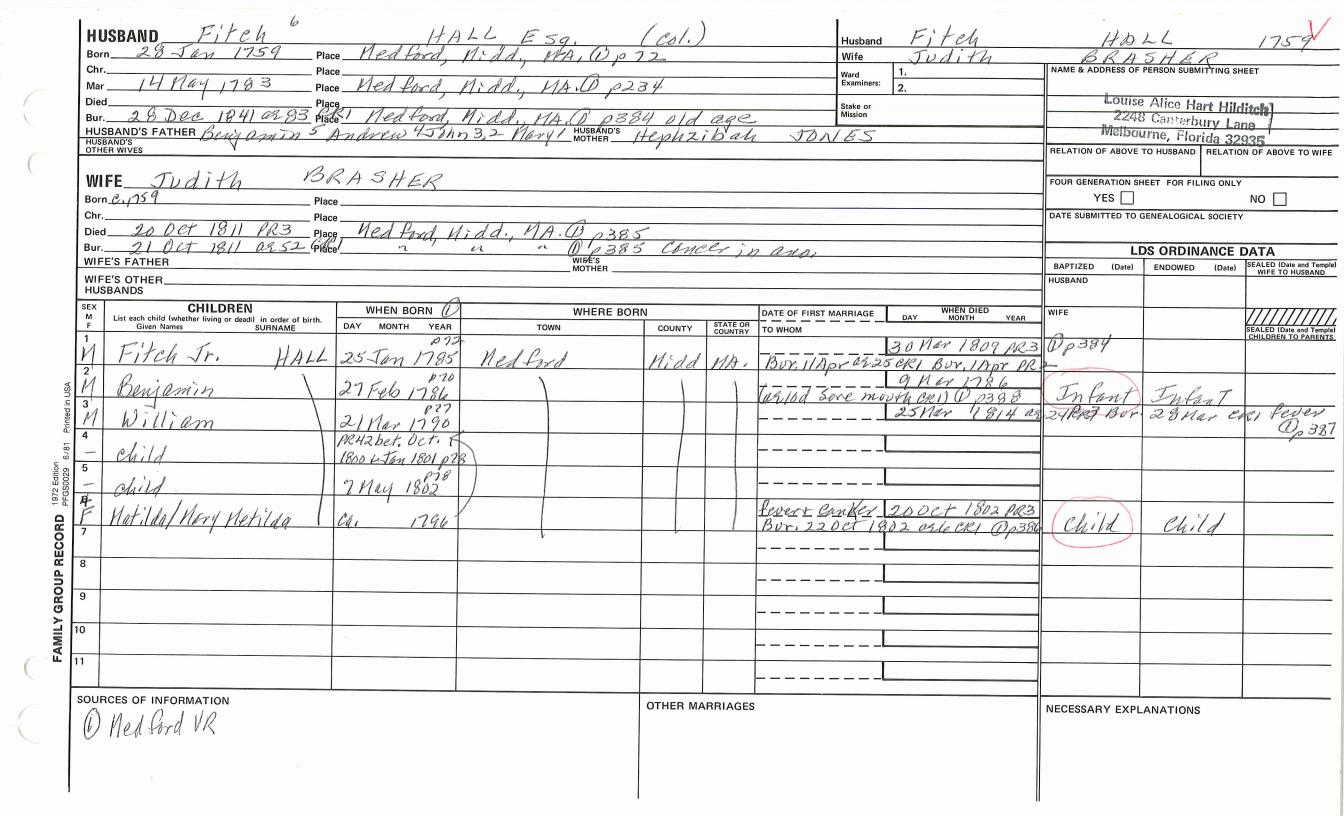 HUSBAND Fitch 6 HALL Esq. (Col.)
Born 28 Jan 1759 Place Medford, Midd., MA. ① p72
Chr. Place
Mar 14 May 1783 Place Medford, Midd, MA. ① p234
Died Place
Bur. 28 Dec 1841 ae83 CR1 Place Medford, Midd, MA. ① p384 old age
HUSBAND'S FATHER Benjamin 5 Andrew 4 John 3,2 Mary 1 HUSBAND'S MOTHER Hephzibah JONES
HUSBAND'S OTHER WIVES
WIFE Judith BRASHER
Born c. 1759 Place
Chr. Place
Died 20 Oct 1811 PR3 Place Medford, Midd., MA. ① p385
Bur. 21 Oct 1811 ae52 Place " " " ① p385 cancer in
WIFE'S FATHER WIFE'S MOTHER
WIFE'S OTHER HUSBANDS
Husband Fitch HALL 1759
Wife Judith BRASHER
Ward Examiners: 1.
2.
Stake or Mission
NAME & ADDRESS OF PERSON SUBMITTING SHEET
Louise Alice Hart Hilditch
2248 Canterbury Lane
Melbourne, Florida 32935
RELATION OF ABOVE TO HUSBAND RELATION OF ABOVE TO WIFE
FOUR GENERATION SHEET FOR FILING ONLY
YES NO
DATE SUBMITTED TO GENEALOGICAL SOCIETY
LDS ORDINANCE DATA
BAPTIZED (Date) ENDOWED (Date) SEALED (Date and Temple) WIFE TO HUSBAND
HUSBAND
WIFE
SEALED (Date and Temple) CHILDREN TO PARENTS
SEX M F CHILDREN WHEN BORN ① WHERE BORN DATE OF FIRST MARRIAGE WHEN DIED
List each child (whether living or dead) in order of birth.
Given Names SURNAME DAY MONTH YEAR TOWN COUNTY STATE OR COUNTRY TO WHOM DAY MONTH YEAR
1 M Fitch Jr. HALL 25 Jan 1785 p72 Medford Midd MA. 30 Mar 1809 PR3 ① p384
Bur. 11 Apr ae25 CR1 Bur. 1 Apr PR2
2 M Benjamin 27 Feb 1786 p70 9 Mar 1786 Infant Infant
(ae10d sore mouth CR1) ① p388
3 M William 21 Mar 1790 p77 25 Mar 1814 ae 24 PR3 Bur. 28 Mar CR1 fever ① p387
4 - child PR42 bet. Oct. 1800 & Jan 1801 p78
5 - child 7 May 1802 p78
F Matilda/Mary Metilda ca. 1796 fever & canker 20 Oct 1802 PR3 Child Child
Bur. 22 Oct 1802 ae6 CR1 ① p386
7
8
9
10
11
SOURCES OF INFORMATION
① Medford VR
OTHER MARRIAGES
NECESSARY EXPLANATIONS
FAMILY GROUP RECORD 1972 Edition PFGS0029 6/81 Printed in USA